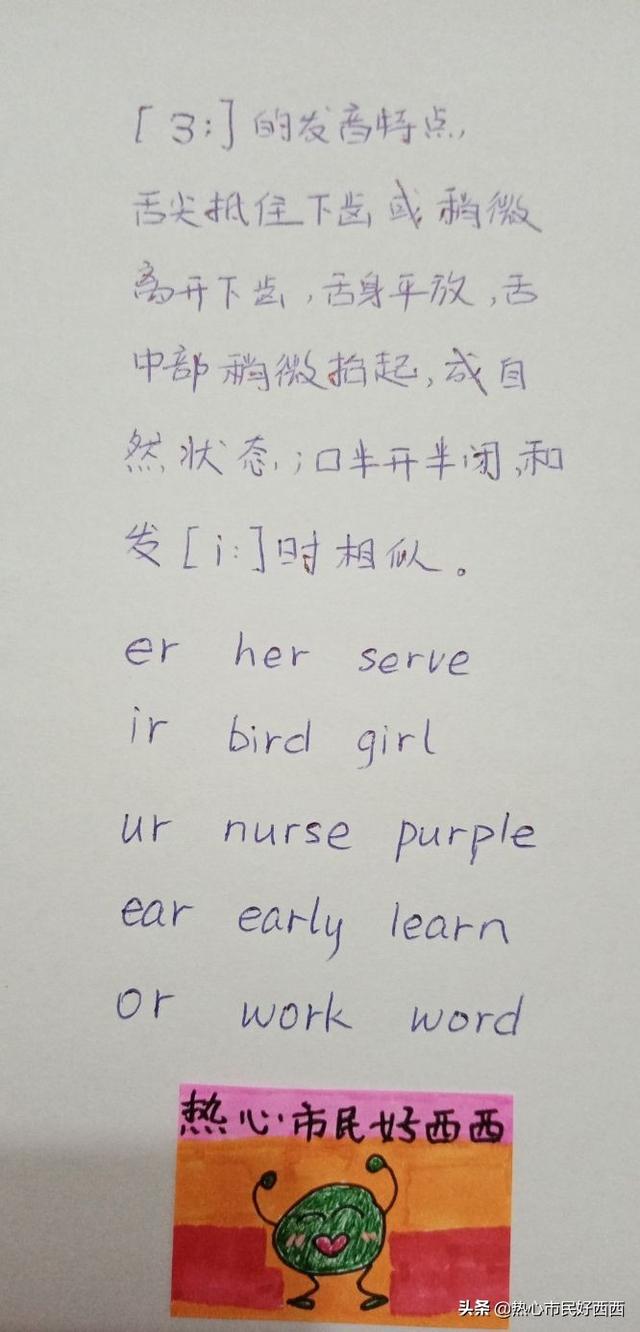 [3:]的发音特点,
舌尖抵住下齿或稍微
离开下齿,舌身平放,舌
中部稍微抬起,成自
然状态;口半开半闭,和
发[i:]时相似。
er her serve
ir bird girl
ur nurse purple
ear early learn
or work word
热心市民好西西
头条 @热心市民好西西